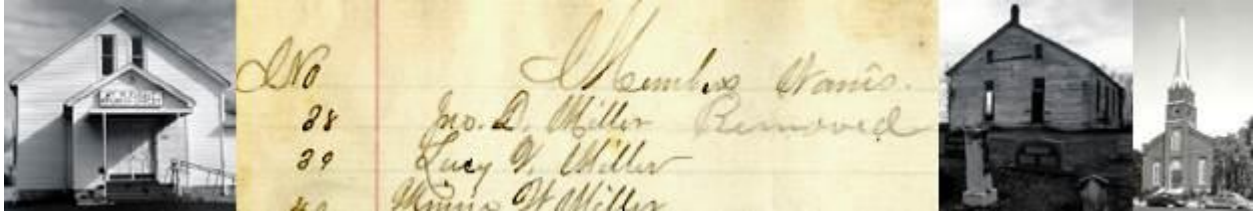 No Members Name.
38 Jno. D. Miller Removed
39 Lucy V. Miller
40 Minnie W Miller